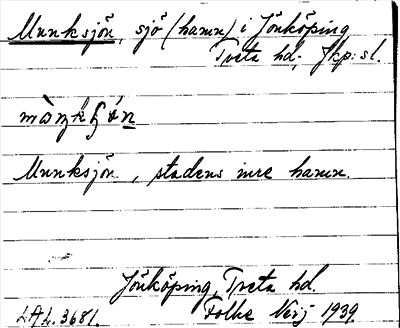 Munksjön, sjö (hamn) i Jönköping
Tveta hd; Jkp:sl.
Munksjön, stadens inre hamn.
Jönköping, Tveta hd.
LAL.3681. Folke Verj 1939.